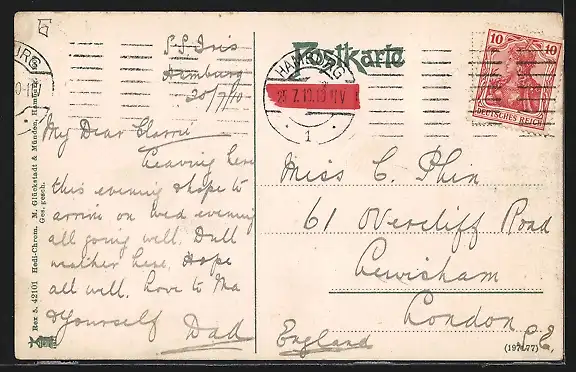 S.S. Iris
Hamburg
25/7/10
My Dear
Leaving here
this evening & hope to
arrive on Wed evening
all going well. Dull
weather here. Hope
all well. Love to Ma
& Yourself
Dad
Rex 5. 42101 Hedi-Chrom. M. Glückstadt & Münden, Hamburg.
Ges. gesch.
Postkarte
HAMBURG
25.7.10
1
10 10
DEUTSCHES REICH
Miss C. Phin
61 Overcliff Road
Lewisham
London S.E.
England